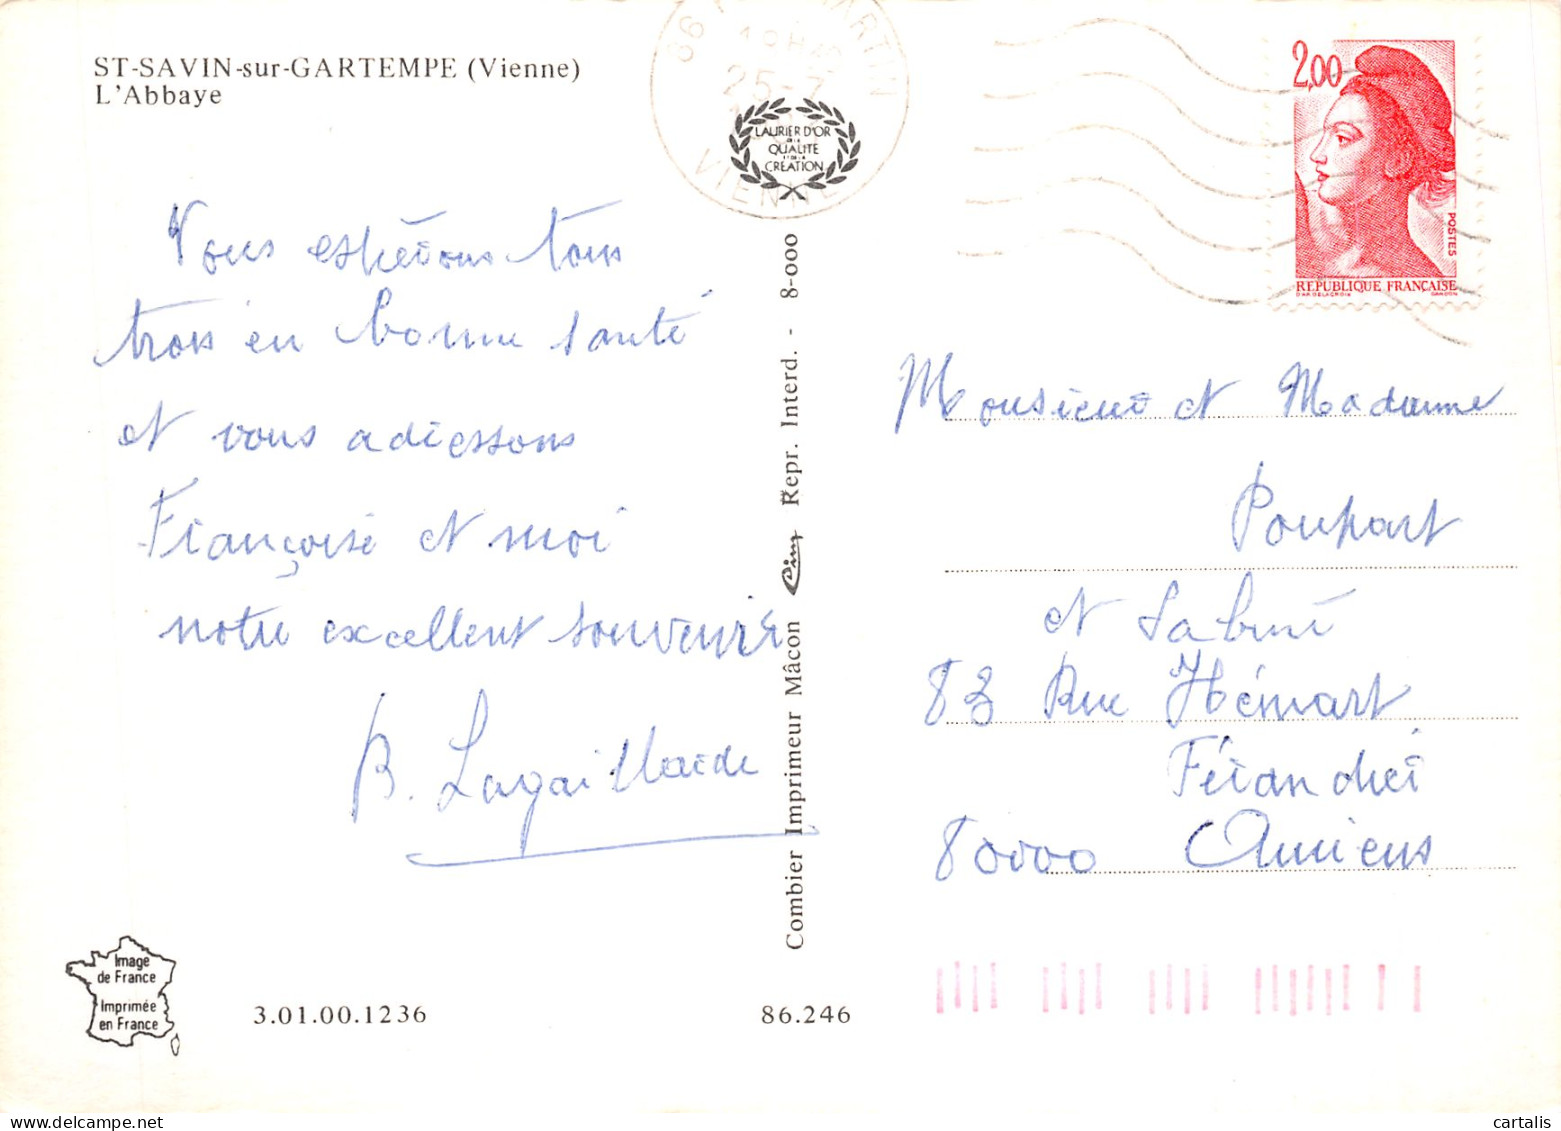 ST-SAVIN-sur-GARTEMPE (Vienne)
L'Abbaye
Vous espérons tous
trois en bonne santé
et vous adressons
Françoise et moi
notre excellent souvenir
B. Lagaillarde
86
MARTIN
19H45
25-7
VIENNE
LAURIER D'OR
DE LA
QUALITÉ
ET DE LA
CRÉATION
Combier Imprimeur Mâcon Cim Repr. Interd. - 8-000
2,00
POSTES
REPUBLIQUE FRANÇAISE
D'AP. DELACROIX GANDON
Monsieur et Madame
Poupart
et Sabine
83 Rue Hémart
Férandier
80000 Amiens
Image
de France
Imprimée
en France
3.01.00.1236
86.246
cartalis